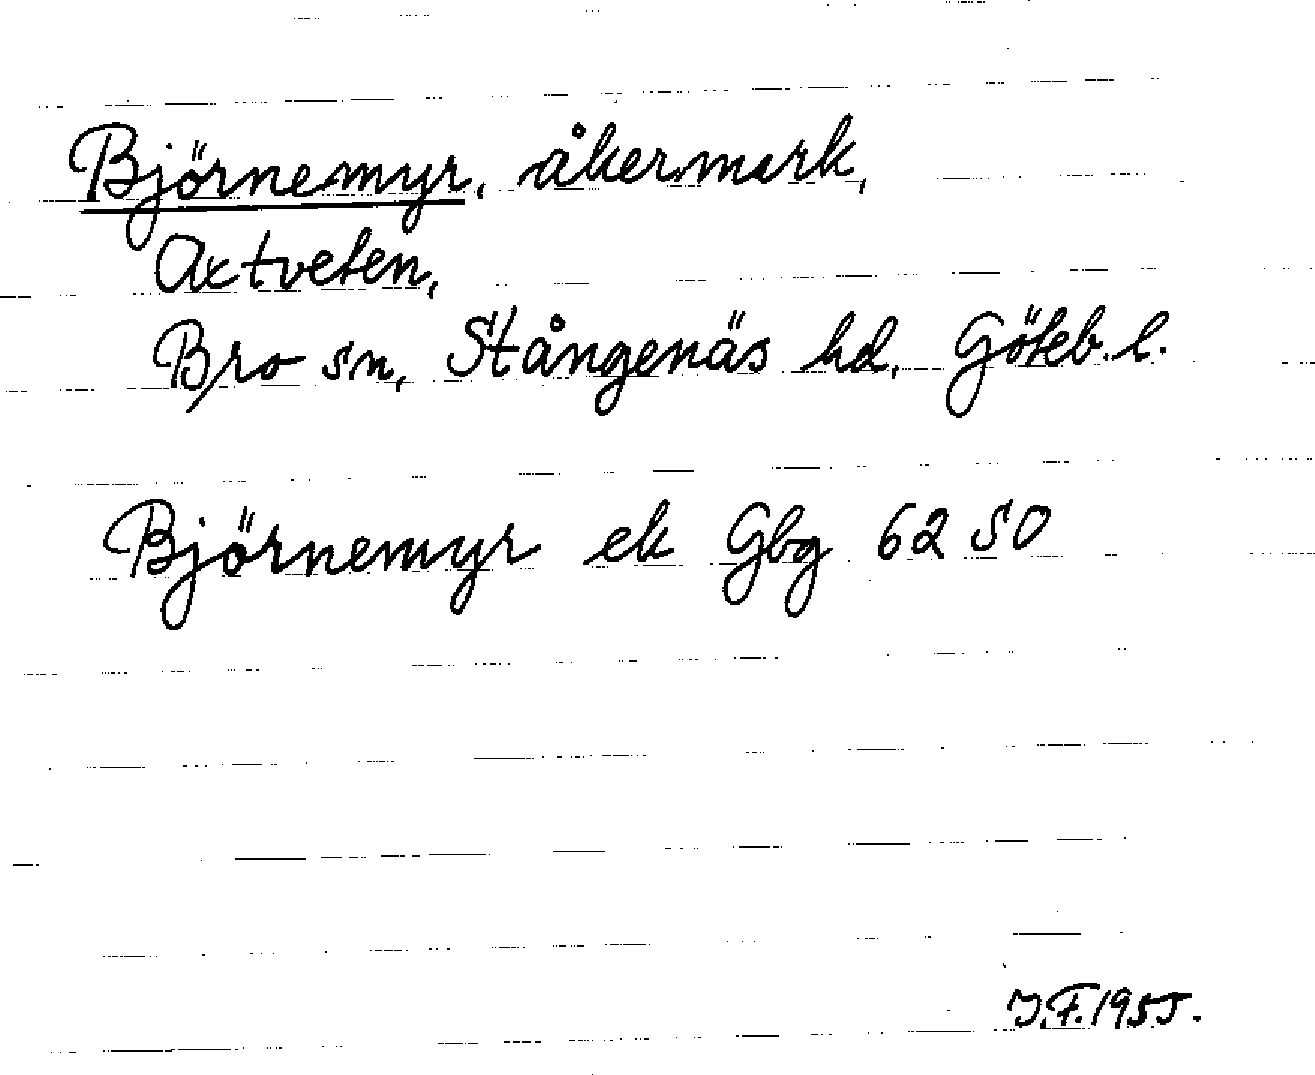 Björnemyr, åkermark,
Axtveten,
Bro sn, Stångenäs hd, Göteb. l.
Björnemyr ek Gbg 6250
J.F. 1955.